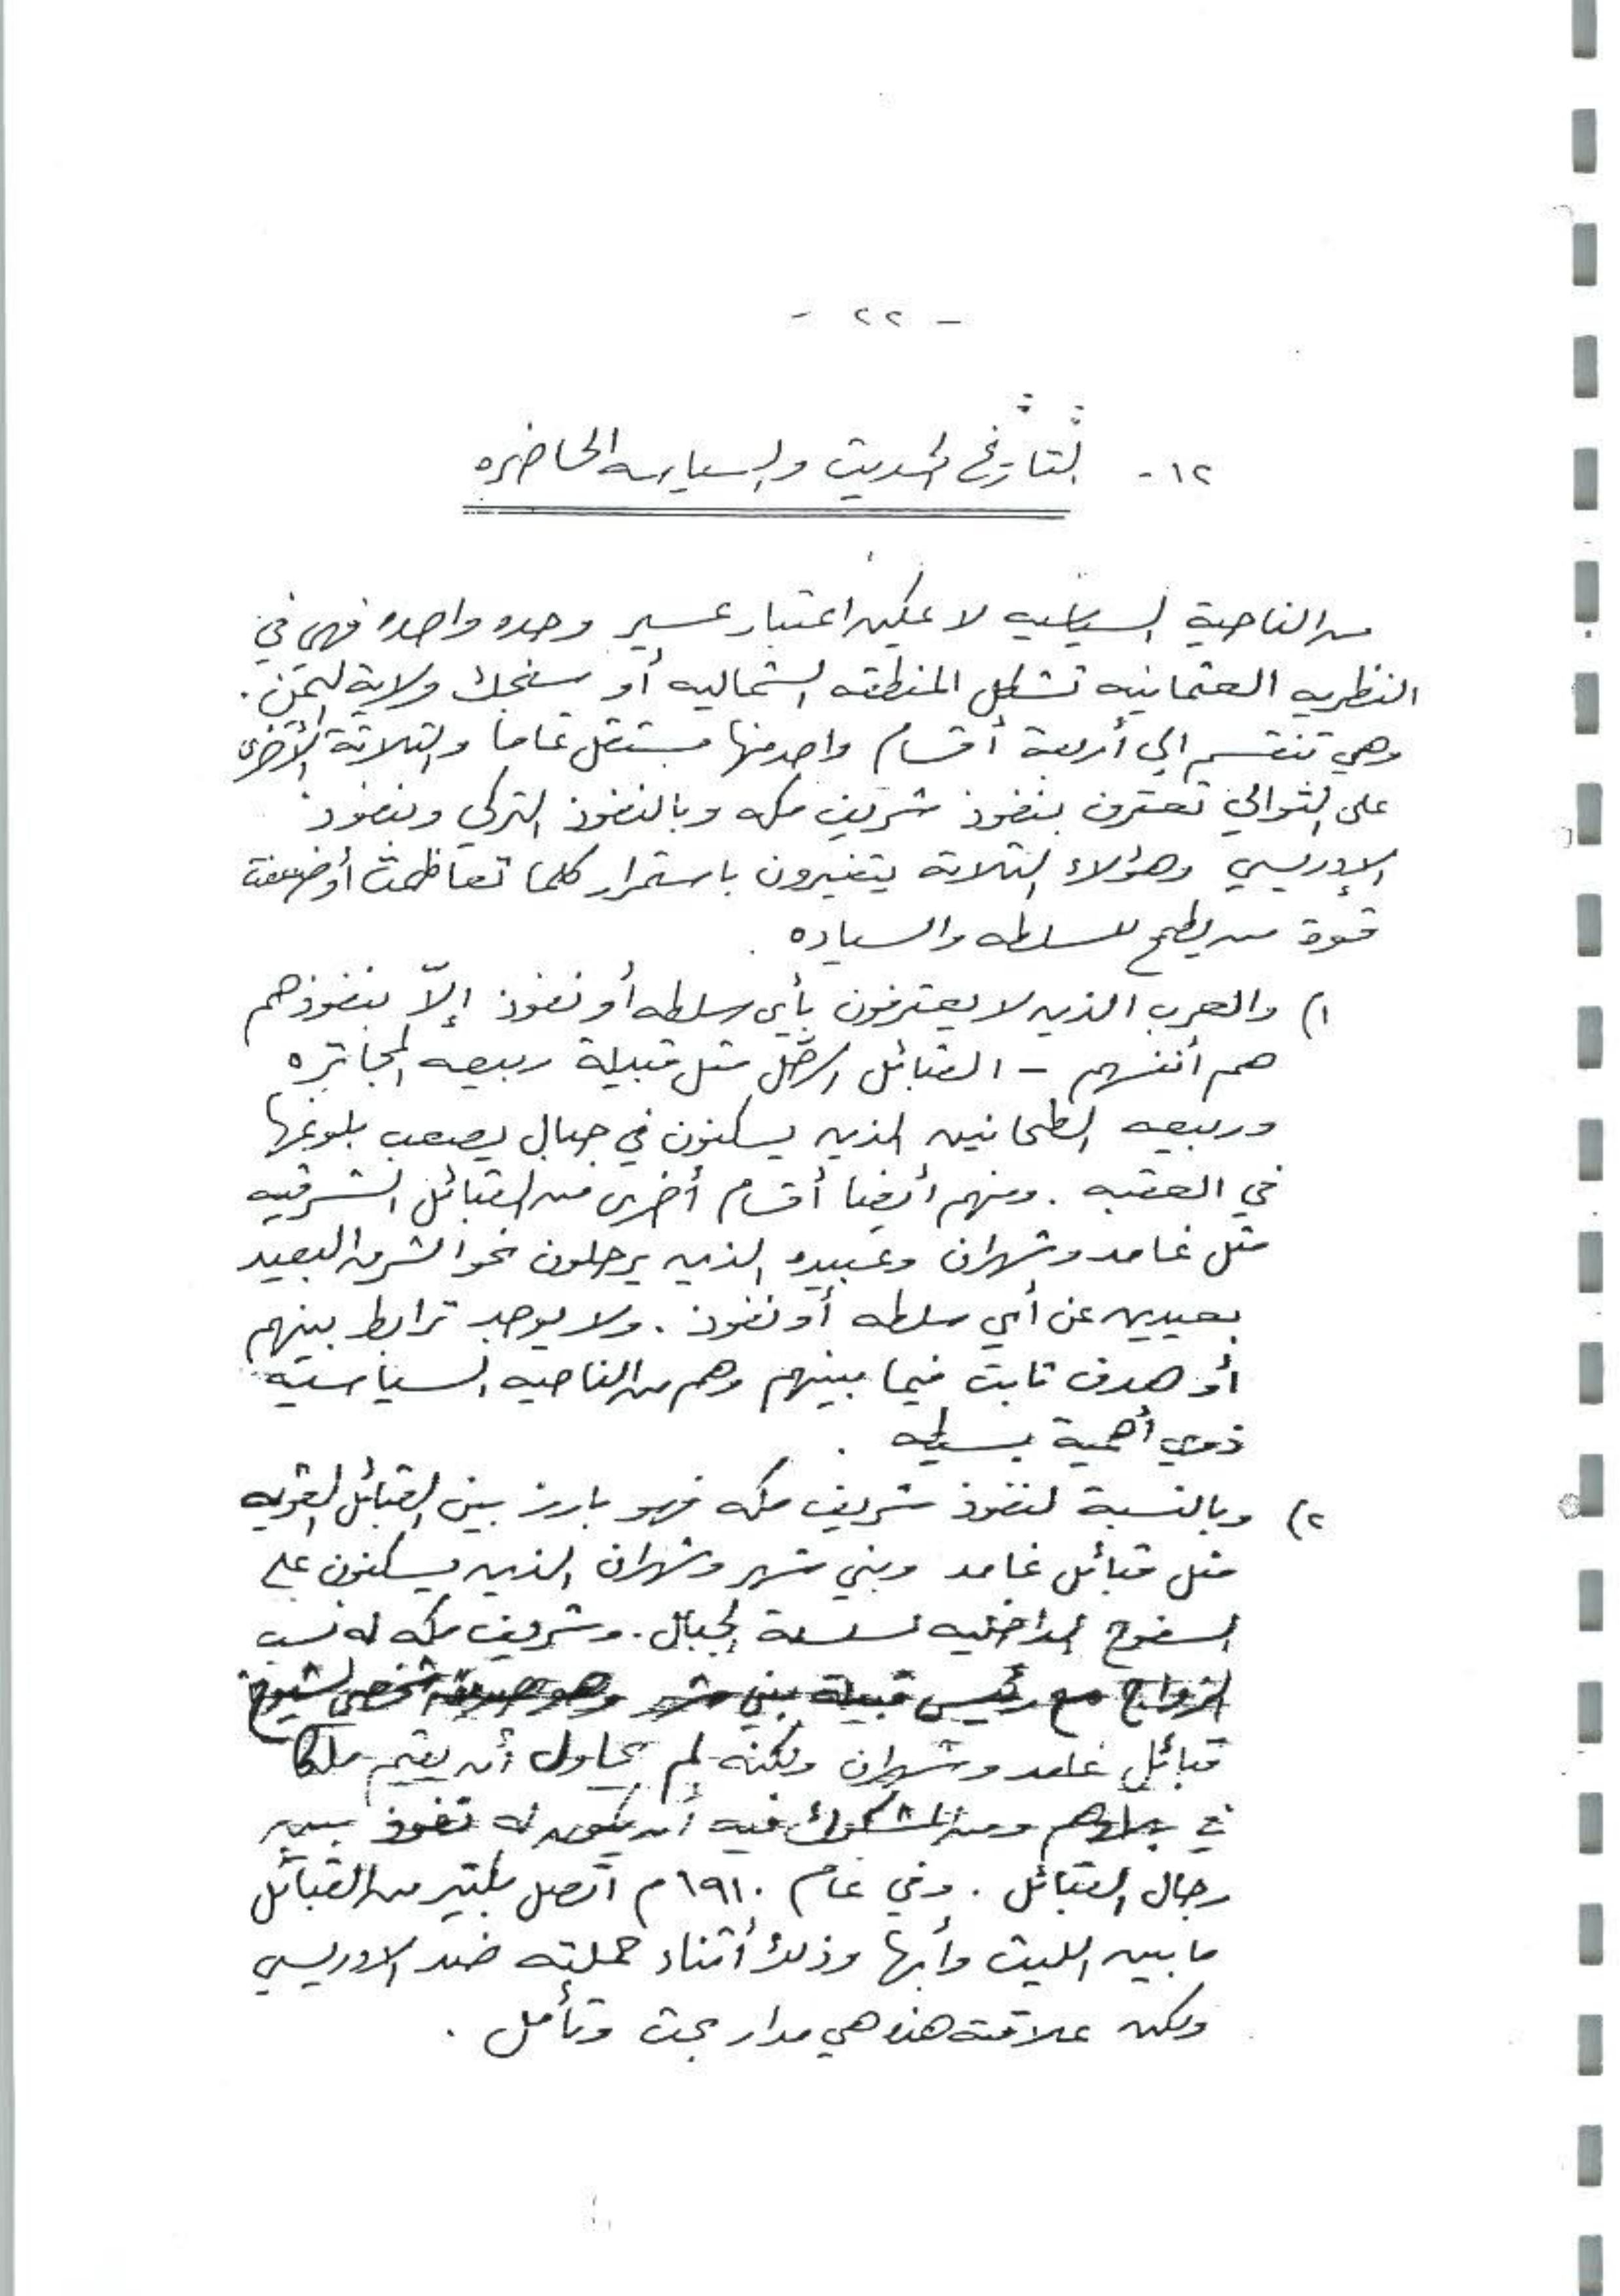 - ٢٢ -
١٢- التاريخ الحديث والسياسه الحاضره
من الناحية السياسيه لا يمكن اعتبار عسير وحده واحده فهى في
النظريه العثمانيه تشكل المنطقه الشماليه أو سنجك ولاية اليمن .
وهي تنقسم الى أربعة أقسام واحد منها مستقل تماما والثلاثة الأخرى
على التوالي تعترف بنفوذ شريف مكه وبالنفوذ التركي وبنفوذ
الإدريسي وهؤلاء الثلاثة يتغيرون باستمرار كلما تعاظمت أو ضعفت
قوة من يطمح للسلطه والسياده .
١) والعرب الذين لا يعترفون بأي سلطه أو نفوذ إلاّ بنفوذهم
هم أنفسهم - القبائل الرحّل مثل قبيلة ربيعه المجاتره
وربيعه الطحانين الذين يسكنون في جبال يصعب بلوغها
في العقبه . ومنهم أيضا أقسام أخرى من القبائل الشرقيه
مثل غامد وشهران وعبيده الذين يرحلون نحو الشرق البعيد
بعيدين عن أي سلطه أو نفوذ . ولا يوجد ترابط بينهم
أو هدف ثابت فيما بينهم وهم من الناحيه السياسيه
ذوي أهمية بسيطه .
٢) وبالنسبة لنفوذ شريف مكه فهو بارز بين القبائل القويه
مثل قبائل غامد وبني شهر وشهران الذين يسكنون على
السفوح الداخليه لسلسة الجبال . وشريف مكه له نسب
الزواج مع رئيس قبيلة بني شهر وهو صديق شخصي لشيوخ
قبائل غامد وشهران ولكنه لم يحاول أن يقيم ملكا
في بلادهم ومن المشكوك فيه أن يكون له نفوذ بين
رجال القبائل . وفي عام ١٩١٠م اتصل بكثير من القبائل
ما بين الليث وأبها وذلك أثناء حملته ضد الادريسي
ولكن علاقته هذه هي مدار بحث وتأمل .